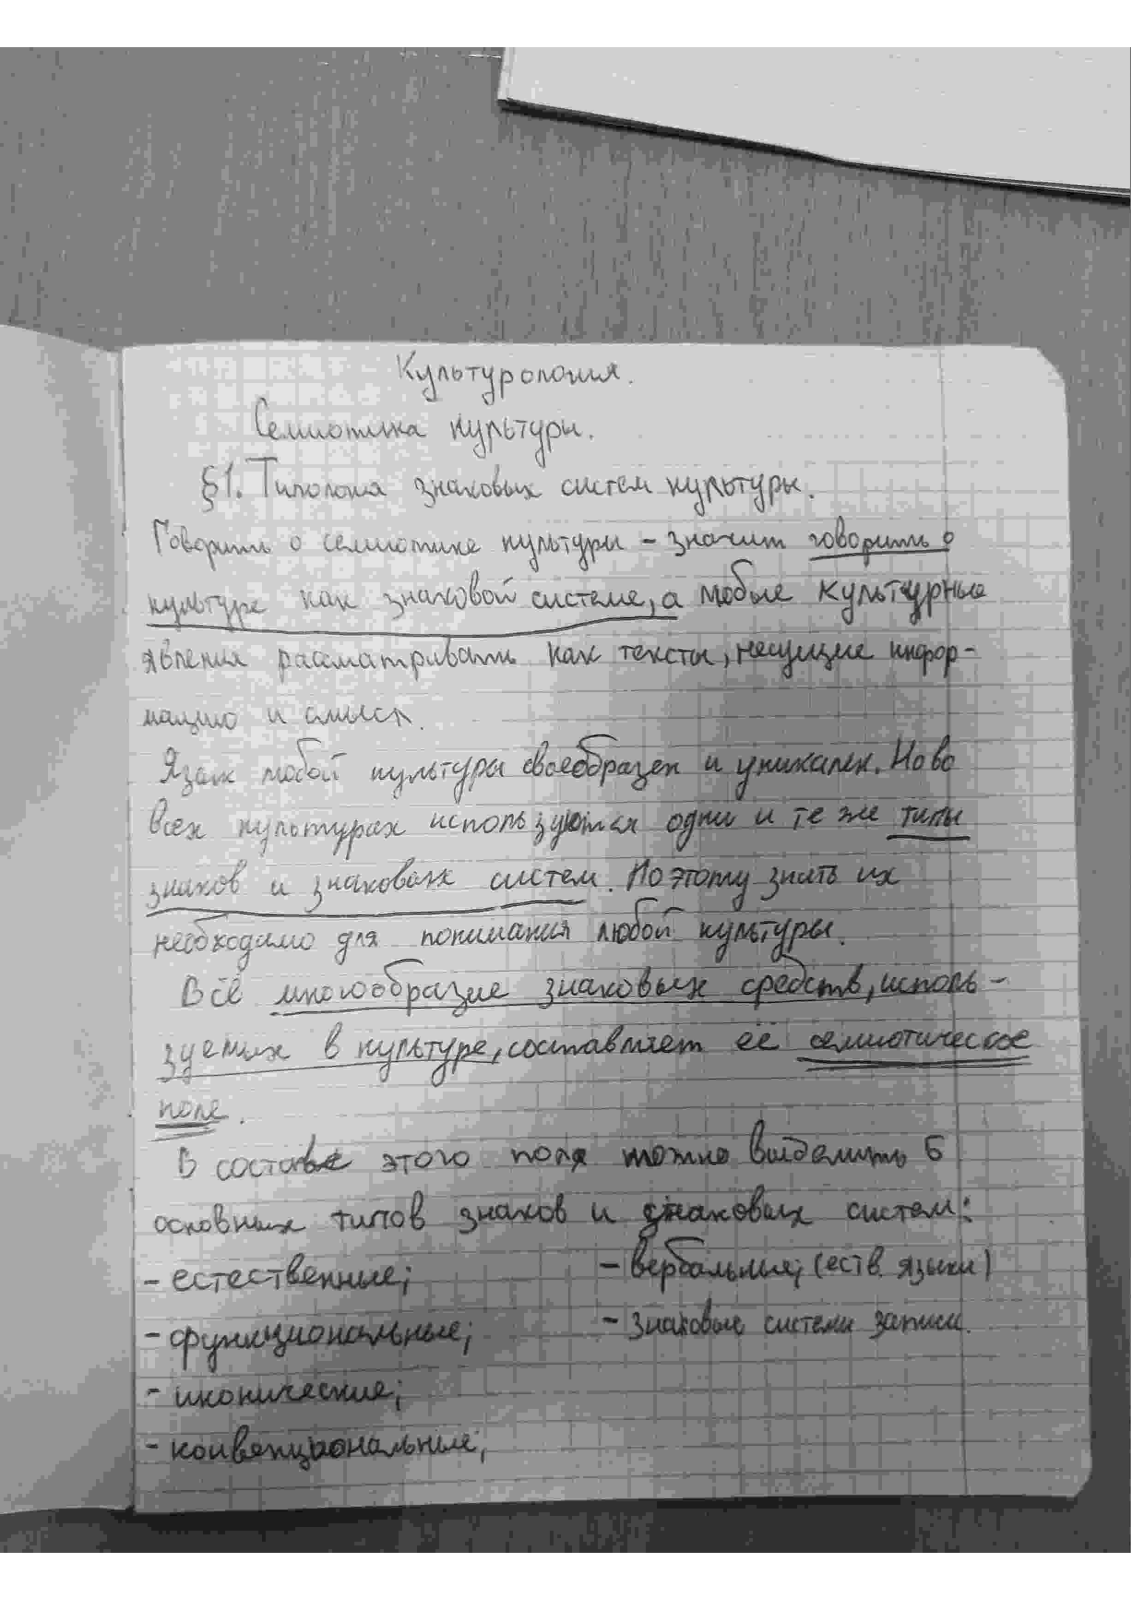 Культурология.
Семиотика культуры.
§1. Типология знаковых систем культуры.
Говорить о семиотике культуры – значит говорить о
культуре как знаковой системе, а любые культурные
явления рассматривать как тексты, несущие инфор-
мацию и смысл.
Язык любой культуры своеобразен и уникален. Но во
всех культурах используются одни и те же типы
знаков и знаковых систем. Поэтому знать их
необходимо для понимания любой культуры.
Всё многообразие знаковых средств, исполь-
зуемых в культуре, составляет её семиотическое
поле.
В составе этого поля можно выделить 6
основных типов знаков и знаковых систем:
- естественные;
- функциональные;
- иконические;
- конвенциональные;
- вербальные; (еств. языки)
- знаковые системы записи.